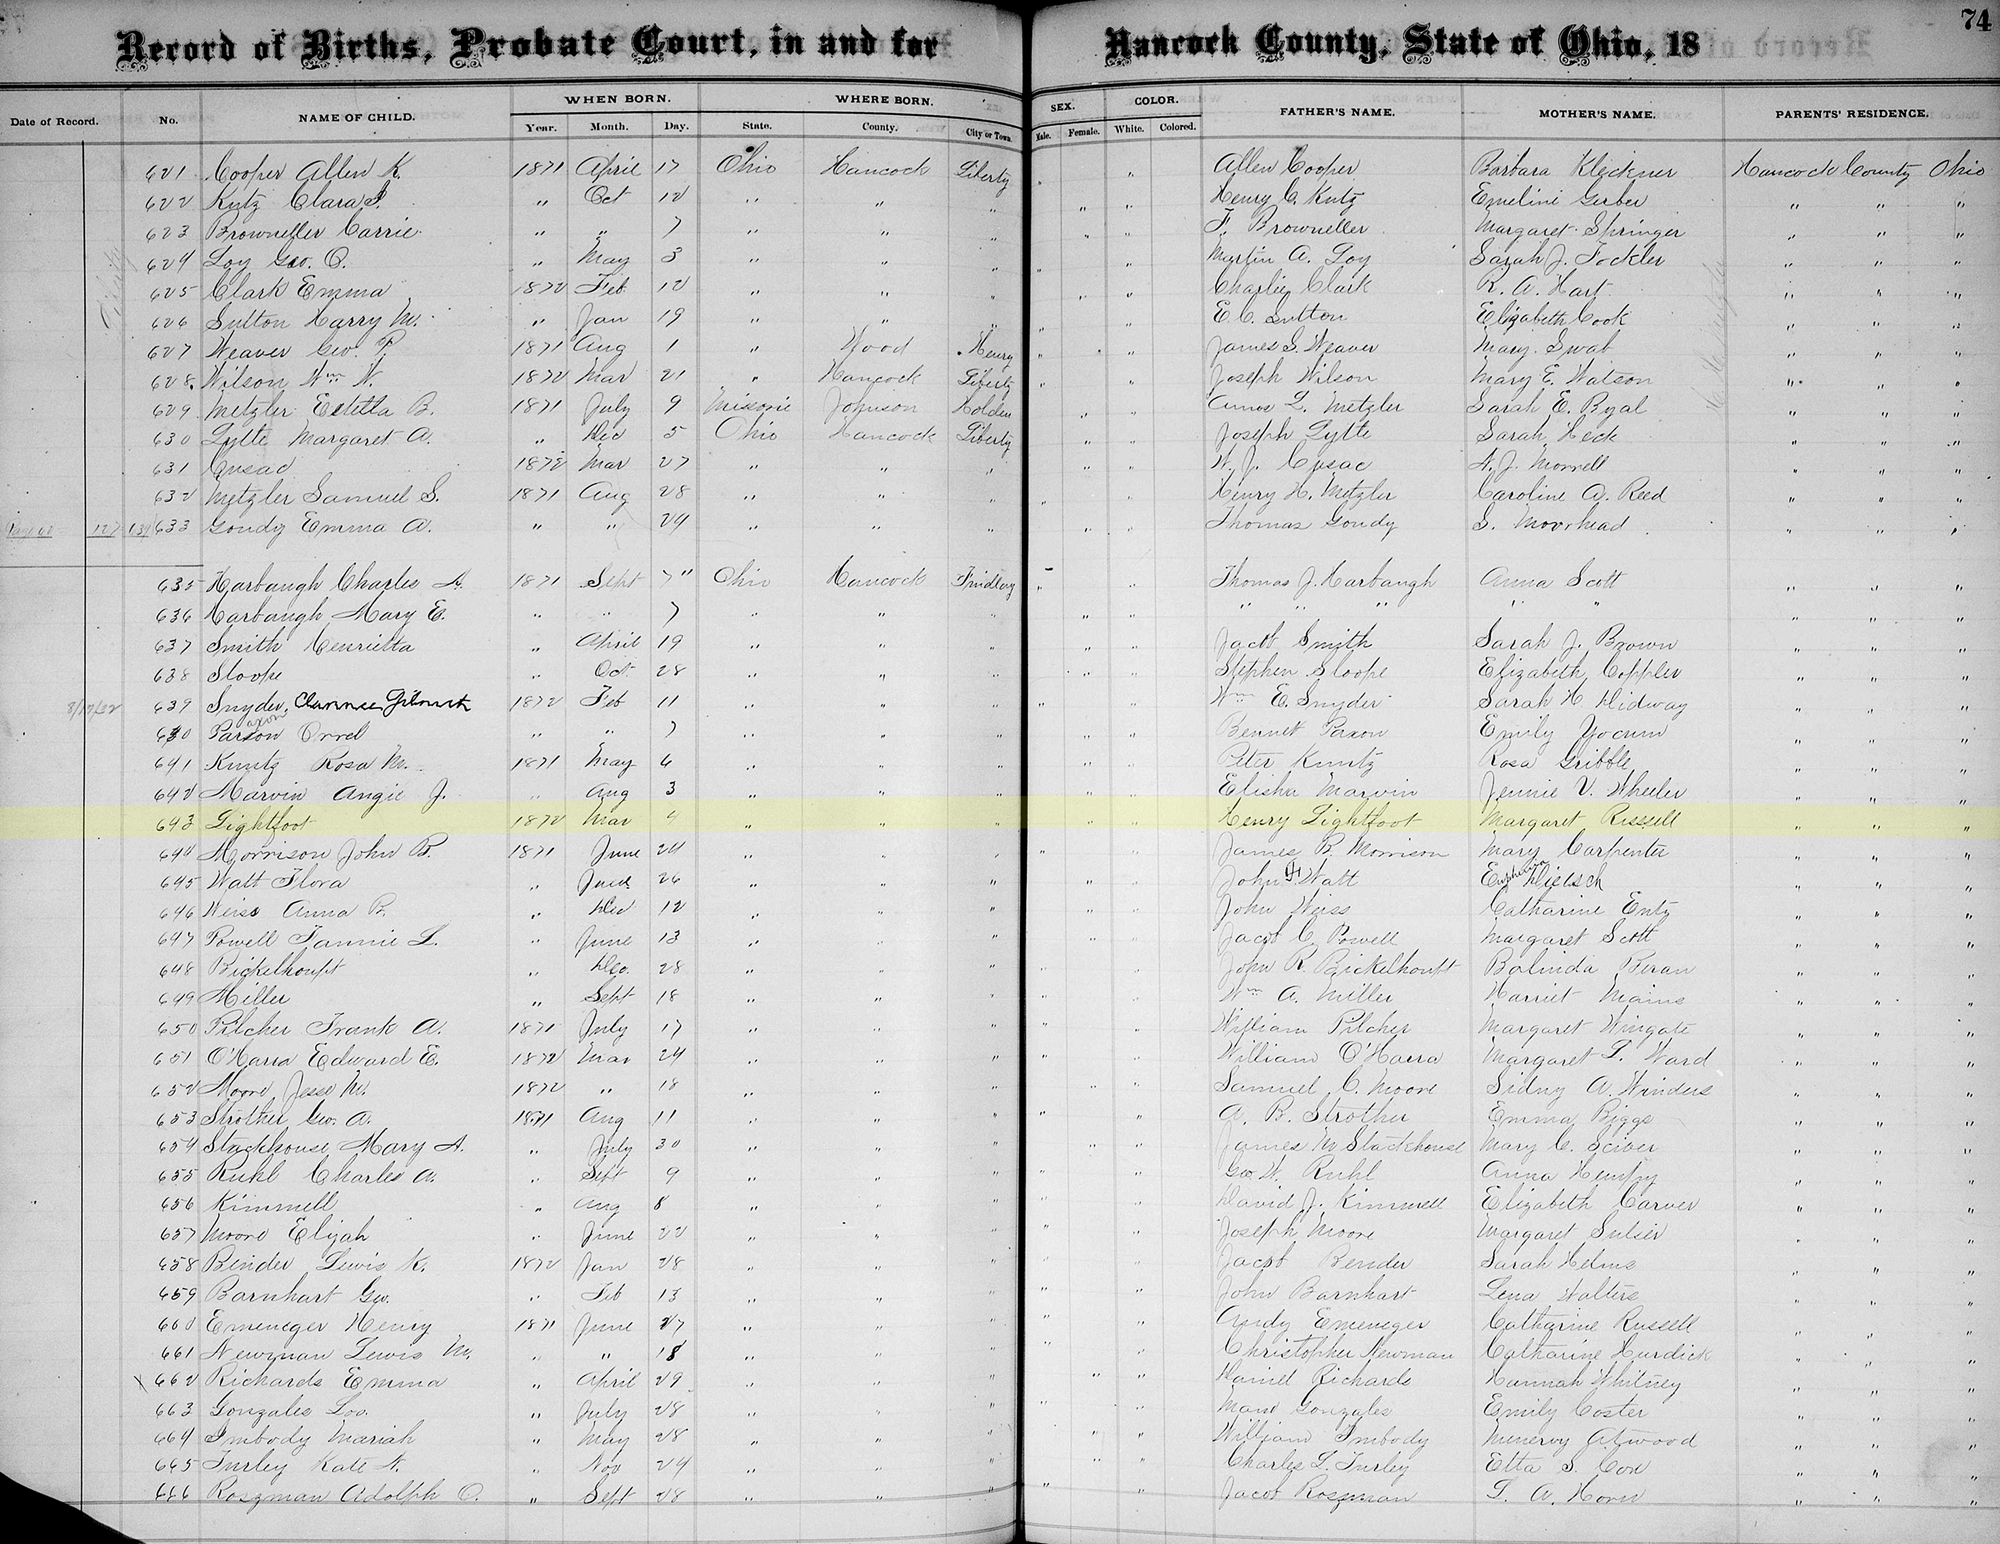 Record of Births, Probate Court, in and for Hancock County, State of Ohio, 18 74
Date of Record. No. NAME OF CHILD. WHEN BORN. WHERE BORN. SEX. COLOR. FATHER'S NAME. MOTHER'S NAME. PARENTS' RESIDENCE.
Year. Month. Day. State. County. City or Town. Male. Female. White. Colored.
621 Cooper Allen K. 1871 April 17 Ohio Hancock Liberty " " Allen Cooper Barbara Kleckner Hancock County Ohio
622 Kutz Clara S. " Oct 12 " " " " " Henry C. Kutz Emeline Gerber " " "
623 Browneller Carrie " " 7 " " " " " F. Browneller Margaret Springer " " "
624 Loy Geo. O. " May 3 " " " " " Martin A. Loy Sarah J. Fockler " " "
625 Clark Emma 1872 Feb 12 " " " " " Charlie Clark R. A. Hart " " "
626 Sutton Harry M. " Jan 19 " " " " " E. C. Sutton Elizabeth Cook " " "
627 Weaver Geo. P. 1871 Aug 1 " Wood Henry " " James S. Weaver Mary Swab " " "
628 Wilson Wm N. 1872 Mar 21 " Hancock Liberty " " Joseph Wilson Mary E. Watson " " "
629 Metzler Estella B. 1871 July 9 Missorie Johnson Holden " " Amos L. Metzler Sarah E. Byal " " "
630 Lytle Margaret A. " Dec 5 Ohio Hancock Liberty " " Joseph Lytle Sarah Heck " " "
631 Cusac 1872 Mar 27 " " " " " W. J. Cusac N. J. Morrell " " "
632 Metzler Samuel S. 1871 Aug 28 " " " " " Henry H. Metzler Caroline A. Reed " " "
633 Goudy Emma A. " " 24 " " " " " Thomas Goudy S. Moorhead " " "
635 Harbaugh Charles A. 1871 Sept 7 " Ohio Hancock Findlay " " Thomas J. Harbaugh Anna Scott " " "
636 Harbaugh Mary E. " " 7 " " " " " " " " " " " " "
637 Smith Henrietta " April 19 " " " " " Jacob Smith Sarah J. Brown " " "
638 Sloope " Oct 28 " " " " " Stephen Sloope Elizabeth Coppler " " "
8/19/32 639 Snyder, Clarence 1872 Feb 11 " " " " " Wm E. Snyder Sarah H. Didway " " "
Paxon Orrel " " 7 " " " " " Bennet Paxon Emily Yocum " " "
641 Kuntz Rosa M. 1871 May 6 " " " " " Peter Kuntz Rosa Gribble " " "
642 Marvin Angie J. " Aug 3 " " " " " Elisha Marvin Jennie V. Wheeler " " "
643 Lightfoot 1872 Mar 4 " " " " " Henry Lightfoot Margaret Rissell " " "
644 Morrison John B. 1871 June 24 " " " " " James B. Morrison Mary Carpenter " " "
645 Watt Flora " June 26 " " " " " John Watt Dietsch " " "
646 Weiss Anna B. " Dec 12 " " " " " John Weiss Catharine Entz " " "
647 Powell Fannie L. " June 13 " " " " " Jacob C. Powell Margaret Scott " " "
648 Bickelhoupt " Dec. 28 " " " " " John R. Bickelhoupt Balinda Beran " " "
649 Miller " Sept 18 " " " " " Wm A. Miller Harriet Mains " " "
650 Pilcher Frank A. 1871 July 17 " " " " " William Pilcher Margaret Wingate " " "
651 O'Harra Edward E. 1872 Mar 24 " " " " " William O'Harra Margaret L. Ward " " "
652 Moore Jesse M. 1872 " 18 " " " " " Samuel C. Moore Sidny A. Winders " " "
653 Strother Geo. A. 1871 Aug 11 " " " " " A. B. Strother Emma Biggs " " "
654 Stackhouse Mary A. " July 30 " " " " " James M Stackhouse Mary C. Sciver " " "
655 Ruhl Charles A. " Sept 9 " " " " " Geo W. Ruhl Anna Humphy " " "
656 Kimmell " Aug 8 " " " " " David J. Kimmell Elizabeth Carver " " "
657 Moore Elijah " June 22 " " " " " Joseph Moore Margaret Sulser " " "
658 Bender Lewis K. 1872 Jan 28 " " " " " Jacob Bender Sarah Helms " " "
659 Barnhart Geo. " Feb 13 " " " " " John Barnhart Lena Walters " " "
660 Emeneger Henry 1871 June 27 " " " " " Andy Emeneger Catharine Russell " " "
661 Newman Lewis M. " " 18 " " " " " Christopher Newman Catharine Hurdick " " "
662 Richards Emma " April 29 " " " " " Daniel Richards Hannah Whitney " " "
663 Gonzales Loo. " July 28 " " " " " Gonzales Emily Coster " " "
664 Imbody Mariah " May 28 " " " " " William Imbody Minervy Atwood " " "
665 Turley Kate N. " Nov 24 " " " " " Charles L. Turley Etta S. Cox " " "
666 Roszman Adolph C. " Sept 28 " " " " " Jacob Roszman L. A. Horn " " "